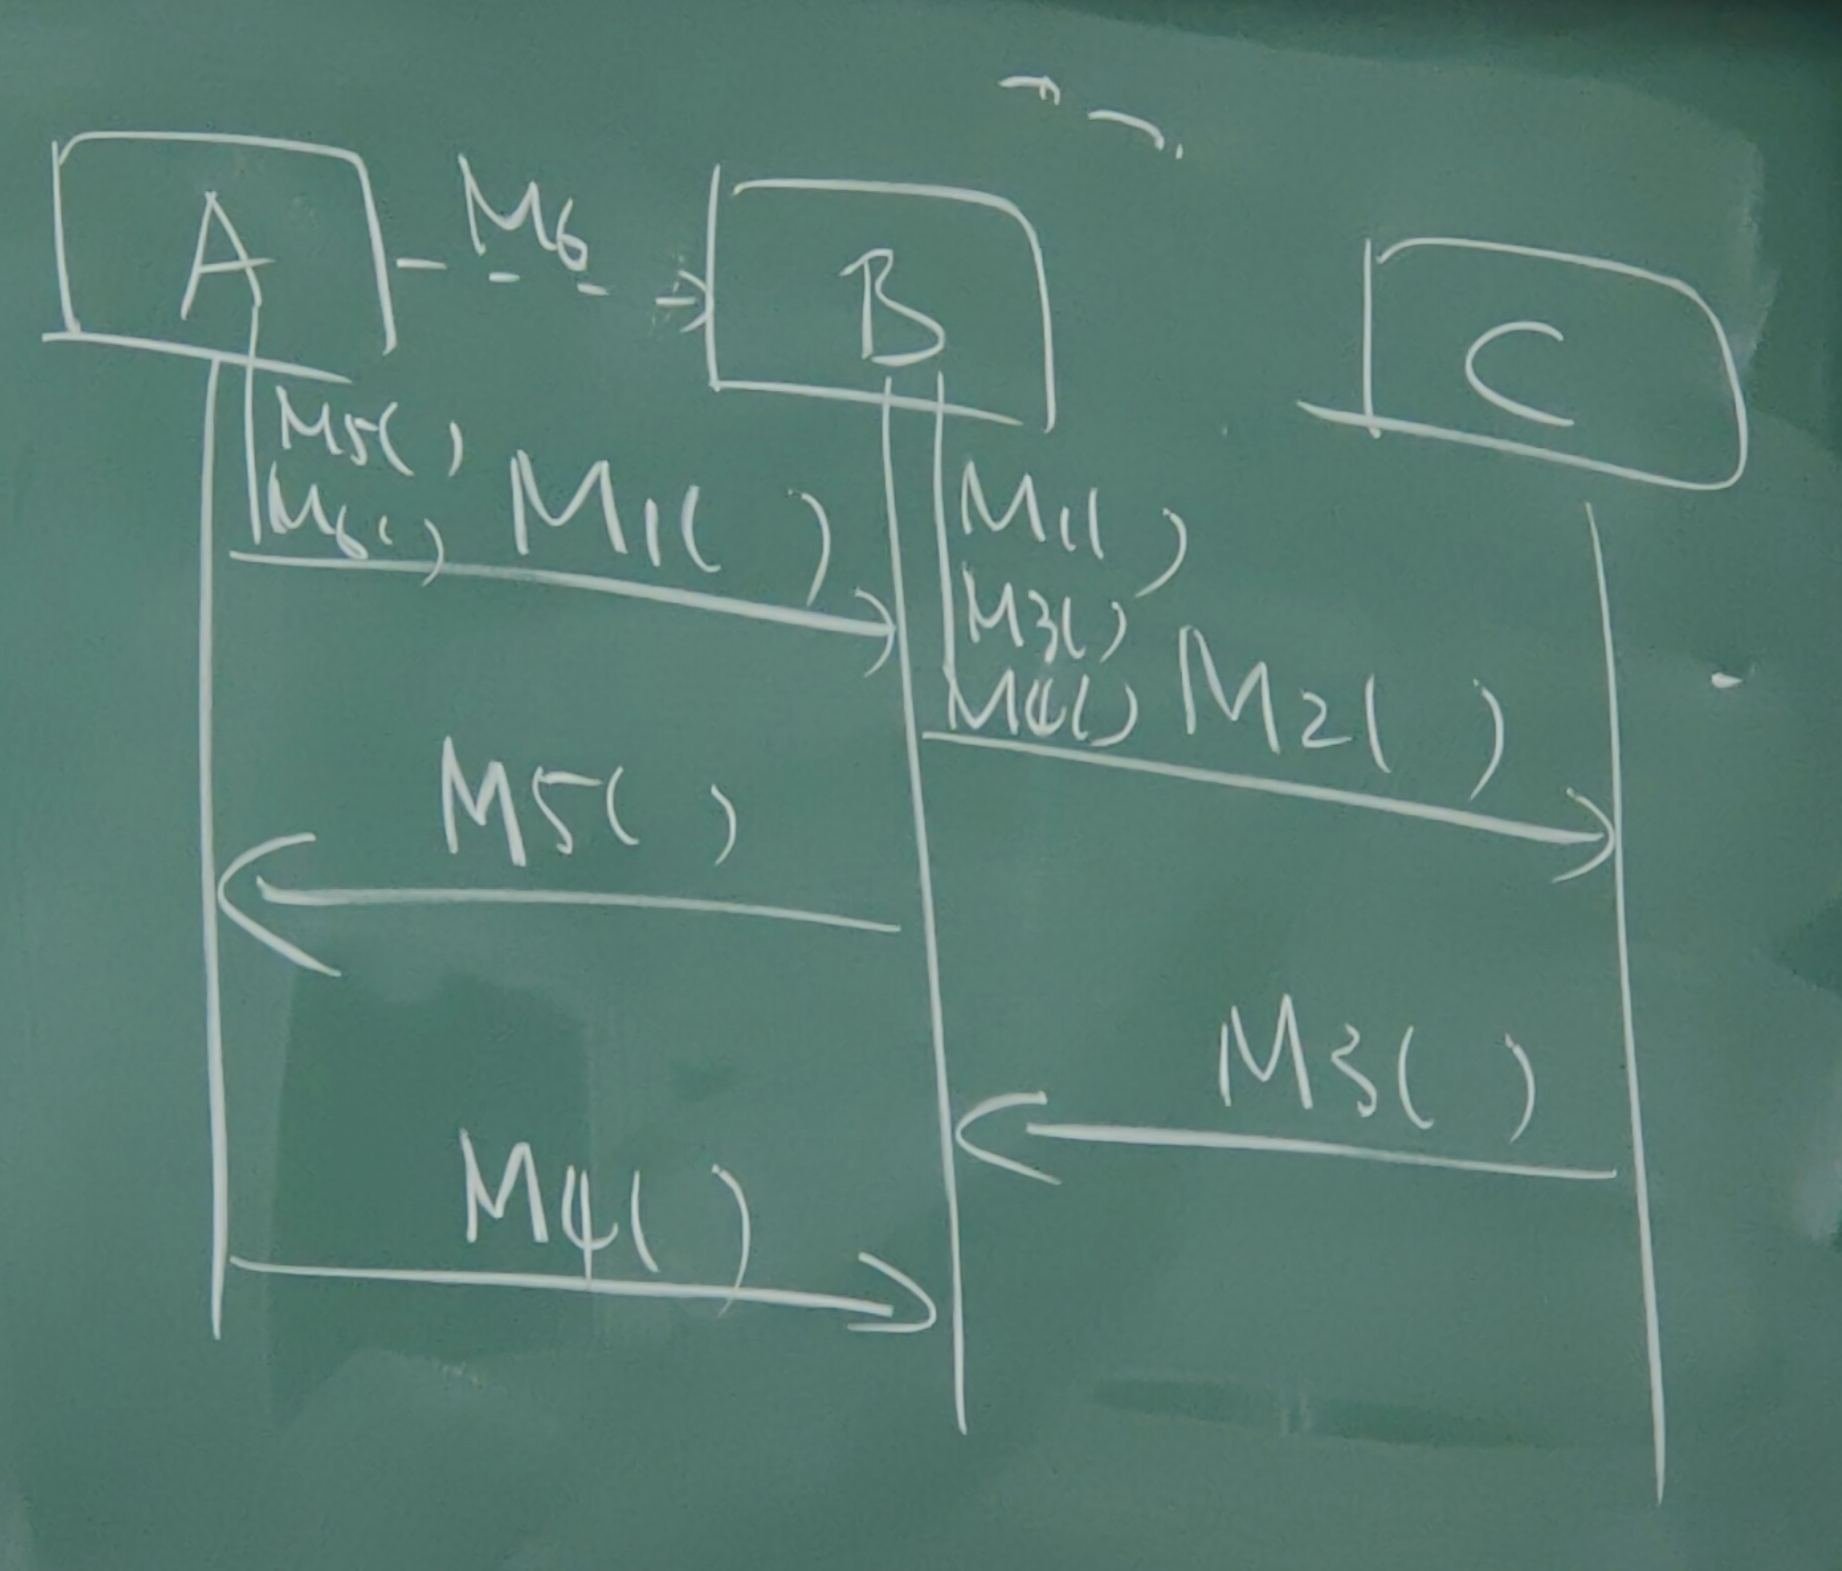 A
M6
B
C
M5( )
M6( )
M1( )
M1( )
M3( )
M4( )
M2( )
M5( )
M3( )
M4( )